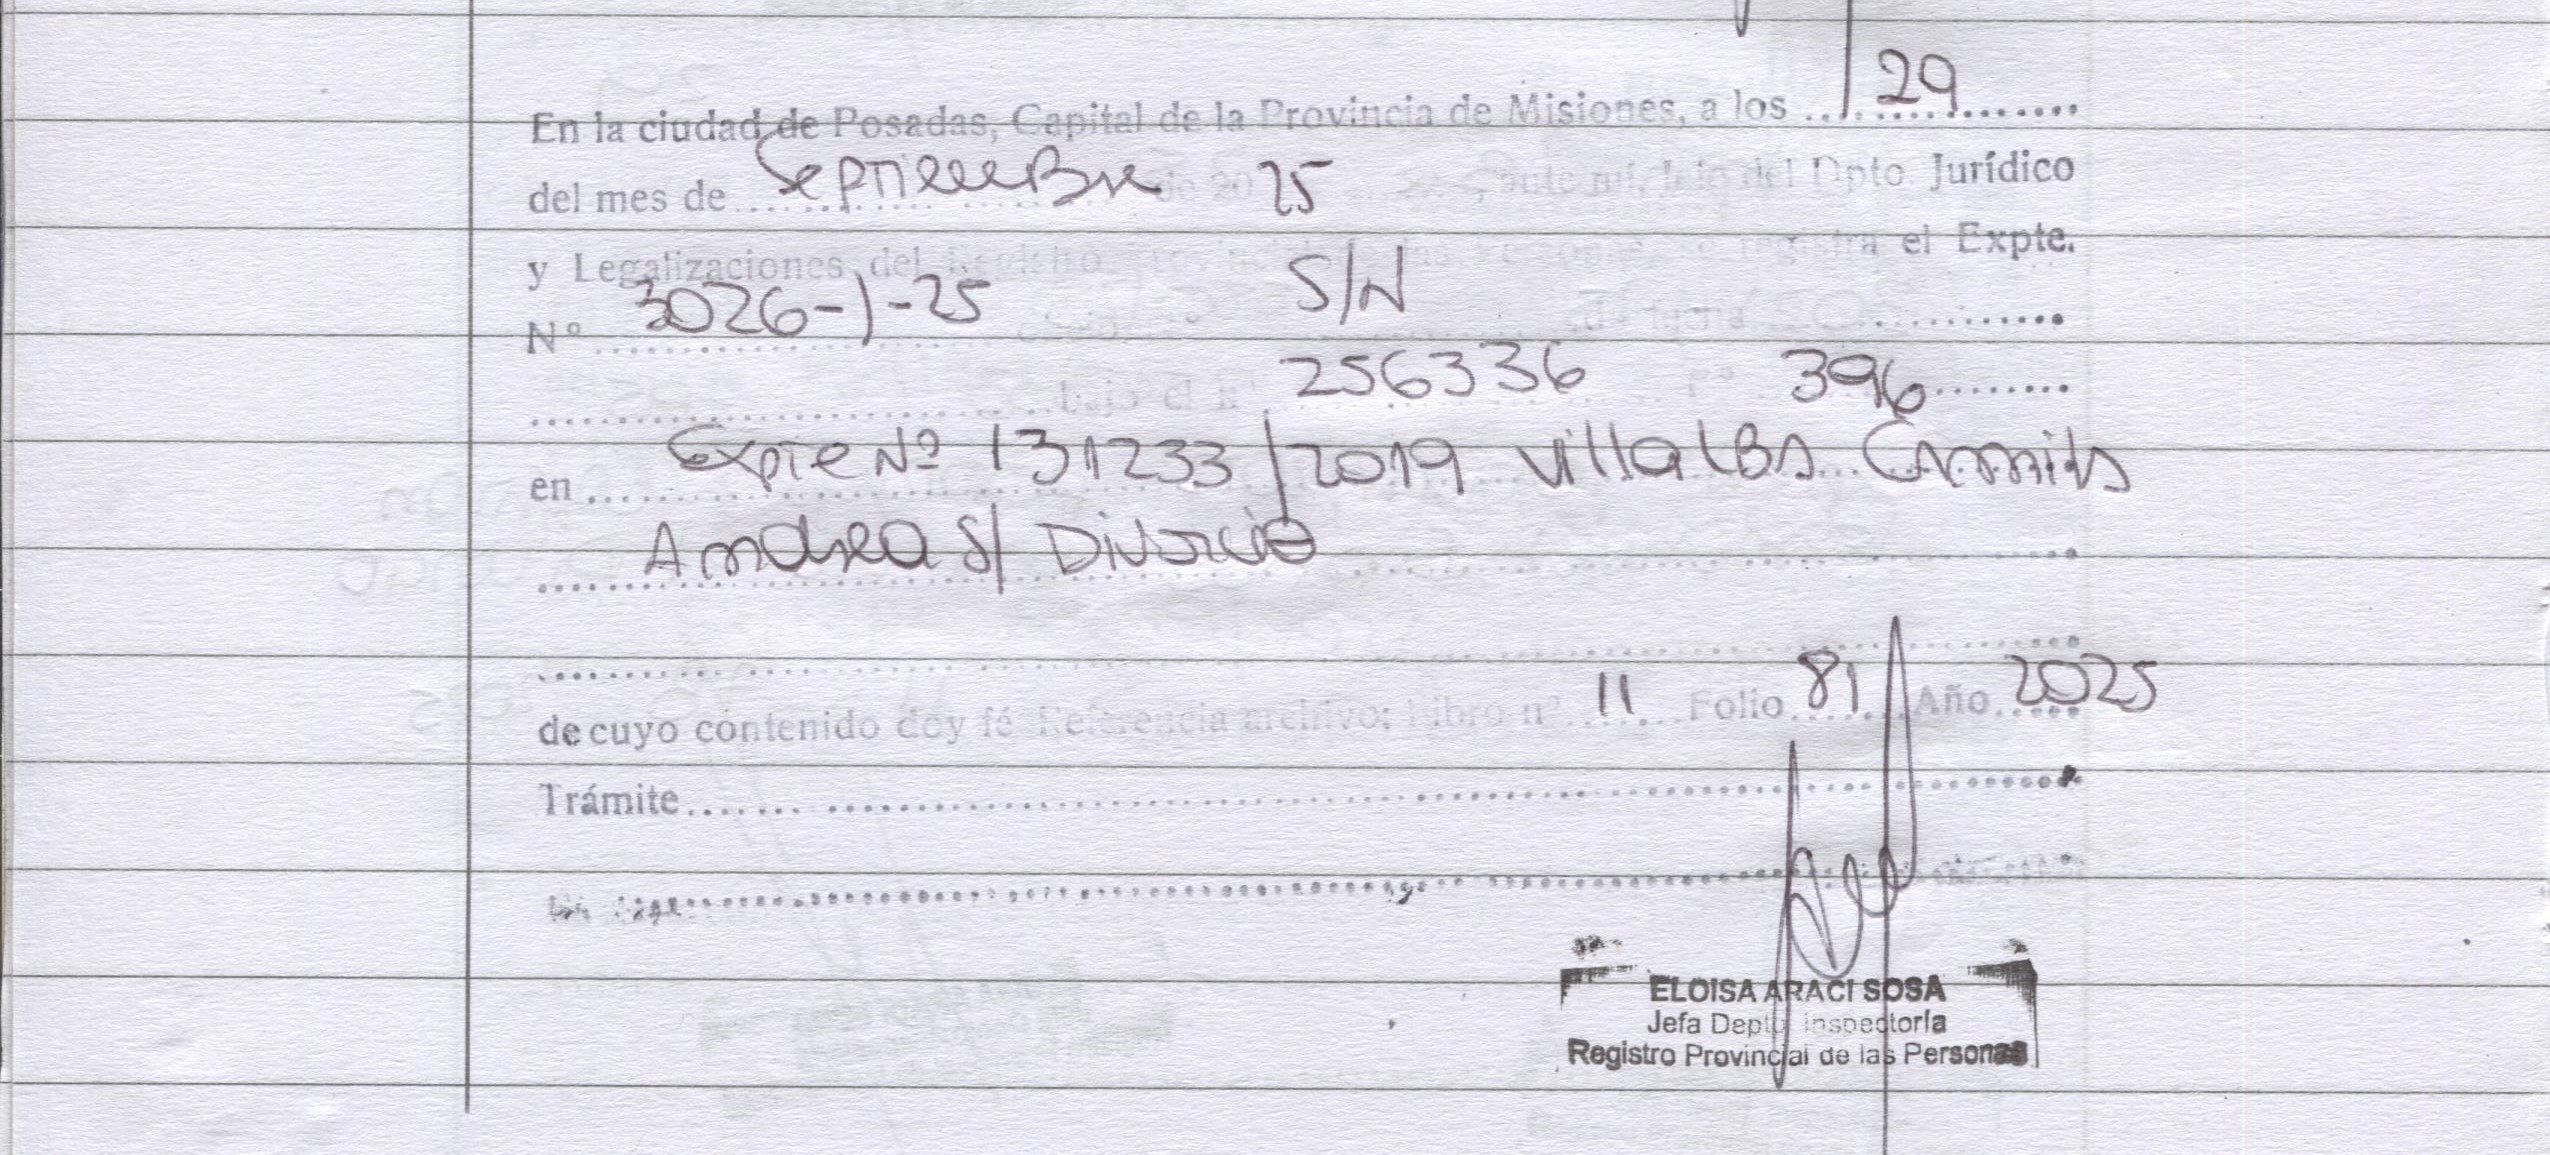 En la ciudad de Posadas, Capital de la Provincia de Misiones, a los 29
del mes de Septiembre de 20 25, ante mi, del Dpto. Jurídico
y Legalizaciones del Registro de las Personas, se registra el Expte.
Nº 3026-1-25 S/N de fecha
bajo el nº 256336 Fº 396
en Expte Nº 131233/2019 Villalba Ermita
Andrea S/ Divorcio
de cuyo contenido doy fé. Referencia archivo: Libro nº 11 Folio 81 Año 2025
Trámite
ELOISA ARACI SOSA
Jefa Depto. Inspectoría
Registro Provincial de las Personas